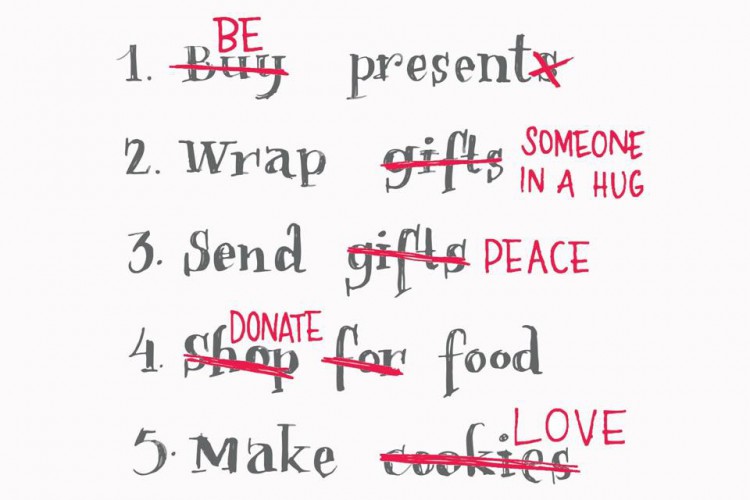 BE
1. Buy presents
2. Wrap gifts SOMEONE
IN A HUG
3. Send gifts PEACE
DONATE
4. Shop for food
LOVE
5. Make cookies